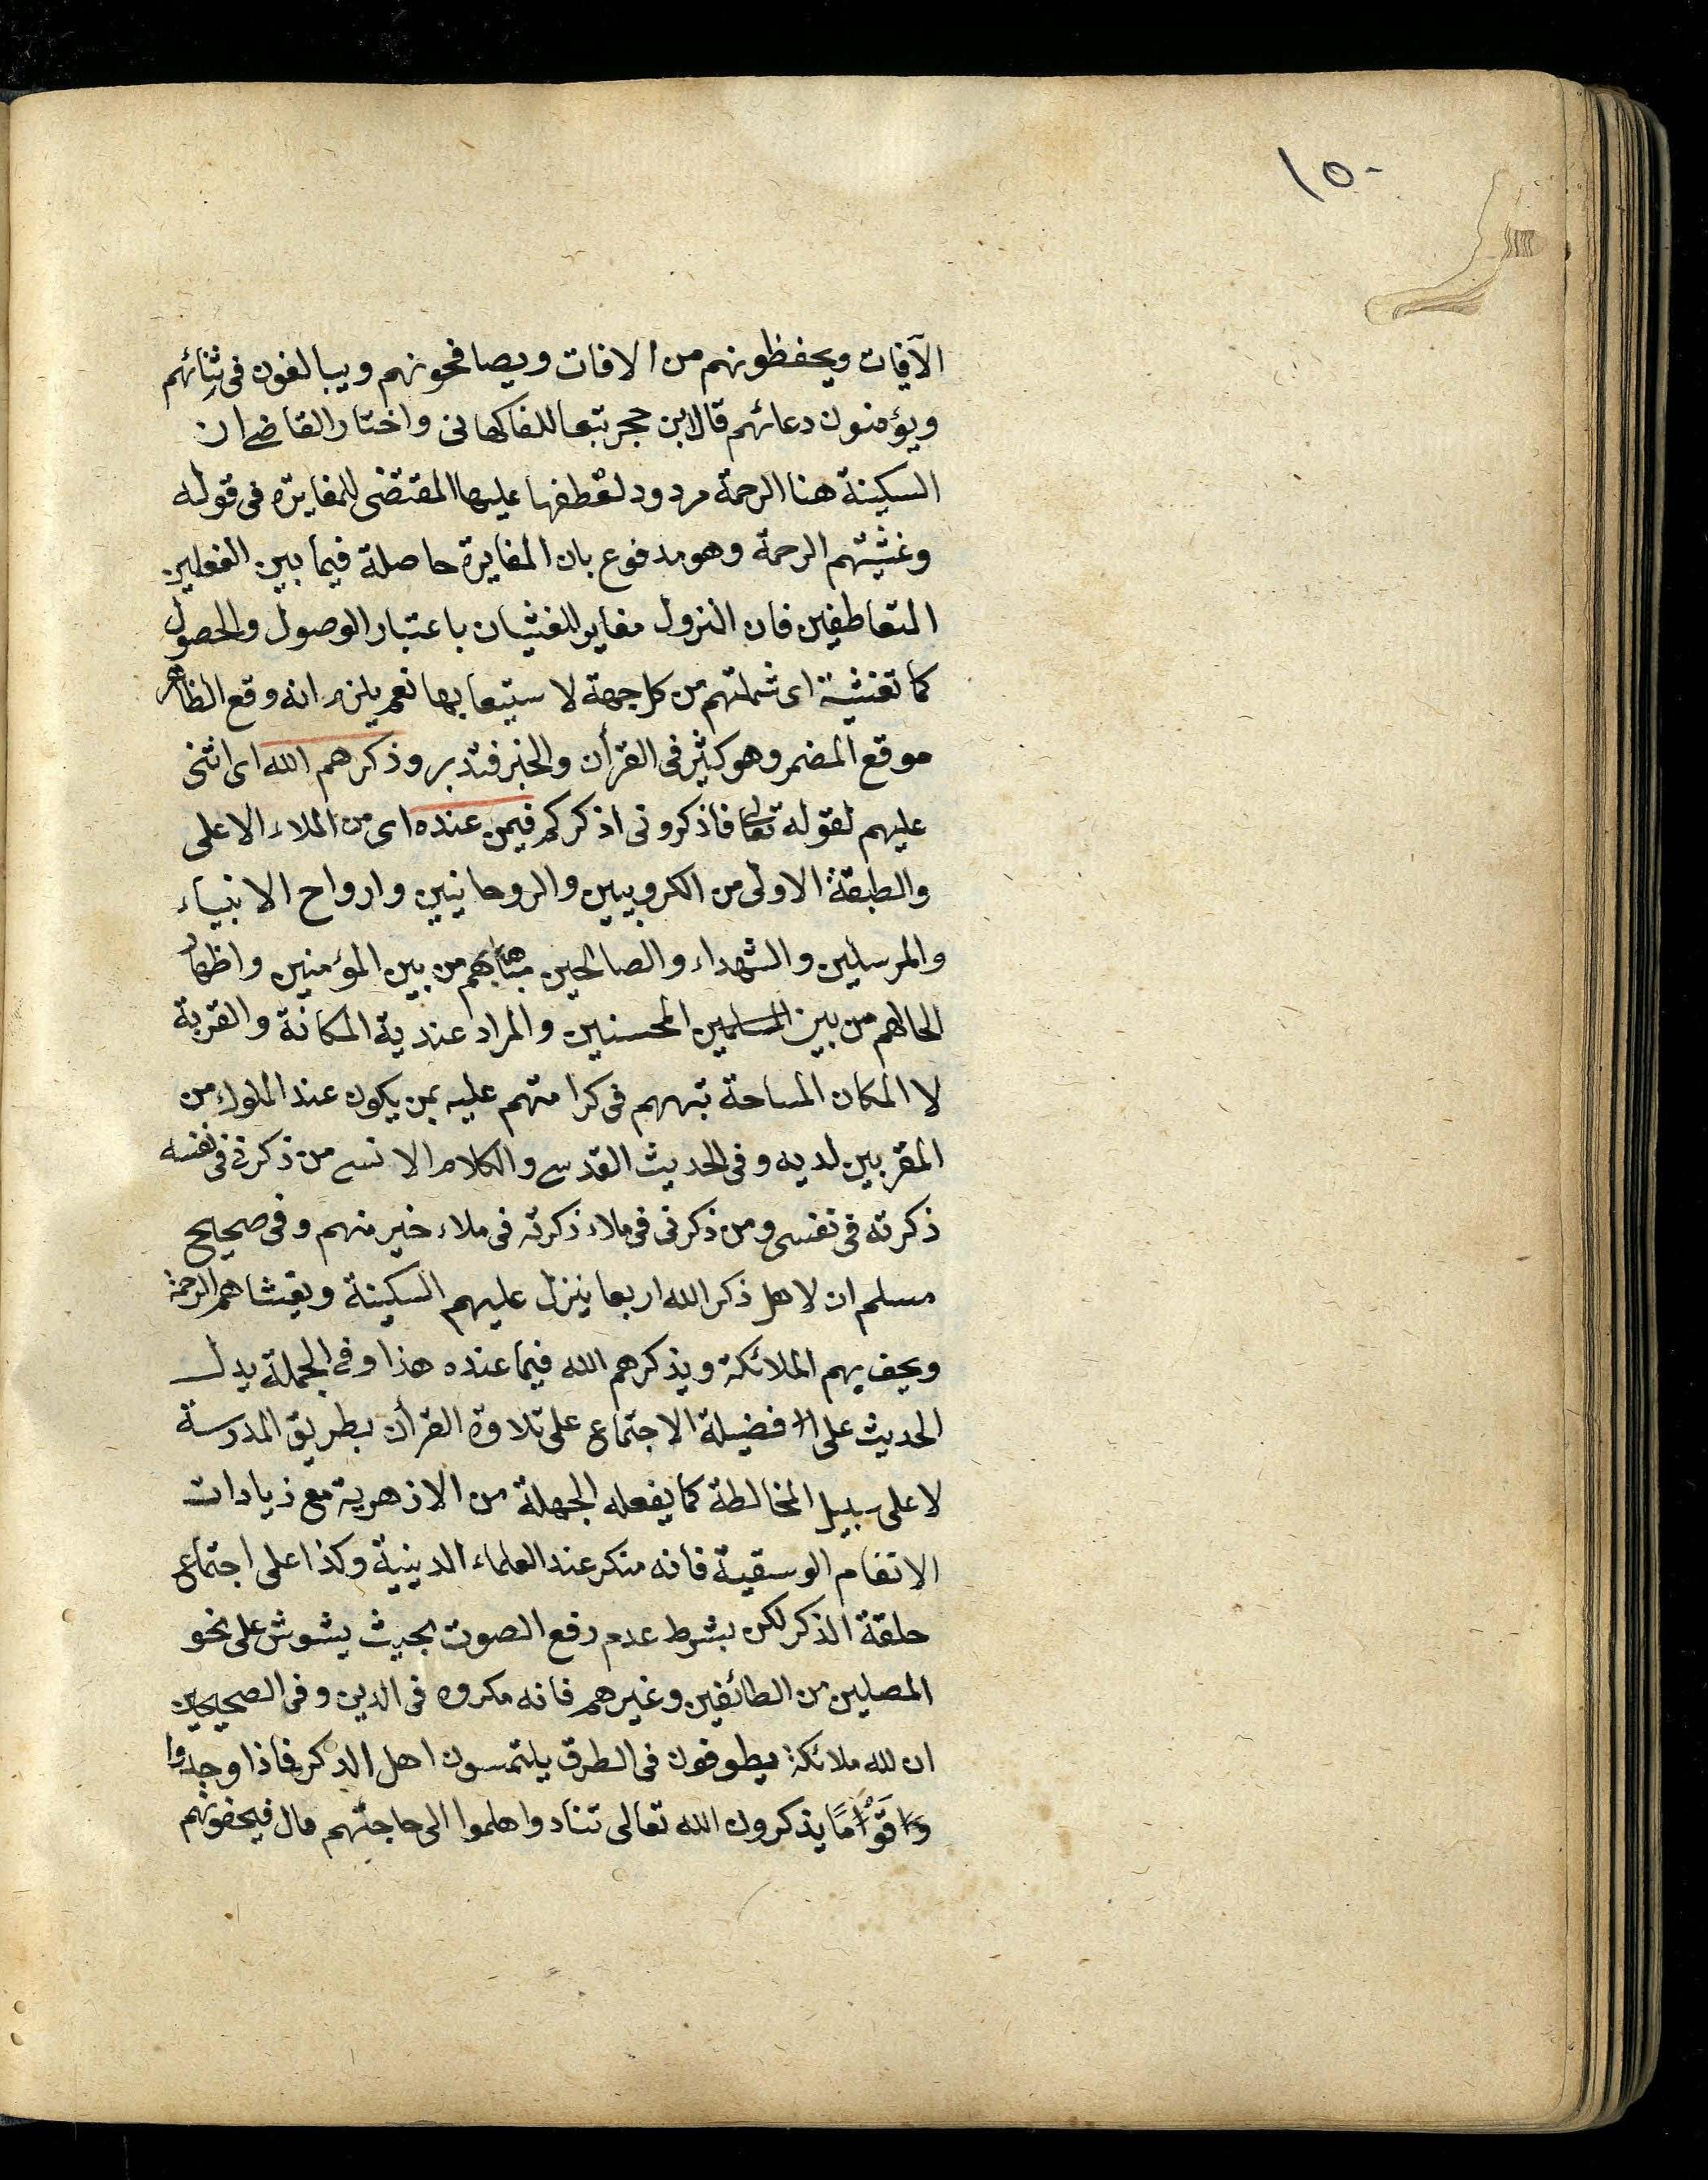 ١٥٠
الآفات ويحفظونهم من الافات ويصافحونهم ويبالغون فى ثنائهم
ويؤمنون دعائهم قال ابن حجر تبعا للفاكهانى واختار القاضى ان
السكينة هنا الرحمة مردود لعطفها عليها المقتضى للمغايرة فى قوله
وغشيتهم الرحمة وهو مدفوع بان المغايرة حاصلة فيما بين الفعلين
المتعاطفين فان النزول مغاير للغشيان باعتبار الوصول والحصول
كما تغشية اى شملتهم من كل جهة لاستيعابها نعم يلزم انه وقع الظاهر
موقع المضمر وهو كثير فى القرأن والخبر فتدبر وذكرهم الله اى اثنى
عليهم لقوله تعالى فاذكرونى اذكركم فيمن عنده اى من الملاء الاعلى
والطبقة الاولى من الكروبيين والروحانيين وارواح الانبياء
والمرسلين والشهداء والصالحين مباهاً بهم من بين المؤمنين واظهارا
لحالهم من بين المسلمين المحسنين والمراد عندية المكانة والقربة
لا المكان المساحة تبههم فى كرامتهم عليه بمن يكون عند الملوك من
المقربين لديه وفى الحديث القدسى والكلام الانسى من ذكرنى فى نفسه
ذكرته فى نفسى ومن ذكرنى فى ملاء ذكرته فى ملاء خير منهم وفى صحيح
مسلم ان لاهل ذكر الله اربعا ينزل عليهم السكينة ويغشاهم الرحمة
ويحف بهم الملائكة ويذكرهم الله فيما عنده هذا وفى الجملة يدل
الحديث على فضيلة الاجتماع على تلاوة القرأن بطريق المدرسة
لا على سبيل المخالطة كما يفعله الجهلة من الازهرية مع زيادات
الانغام الوسقية فانه منكر عند العلماء الدينية وكذا على اجتماع
حلقة الذكر لكن بشرط عدم رفع الصوت بحيث يشوش على نحو
المصلين من الطائفين وغيرهم فانه مكروه فى الدين وفى الصحيحين
ان لله ملائكة يطوفون فى الطرق يلتمسون اهل الذكر فاذا وجدوا
قَوْمًا يذكرون الله تعالى تنادوا هلموا الى حاجتهم قال فيحفونهم